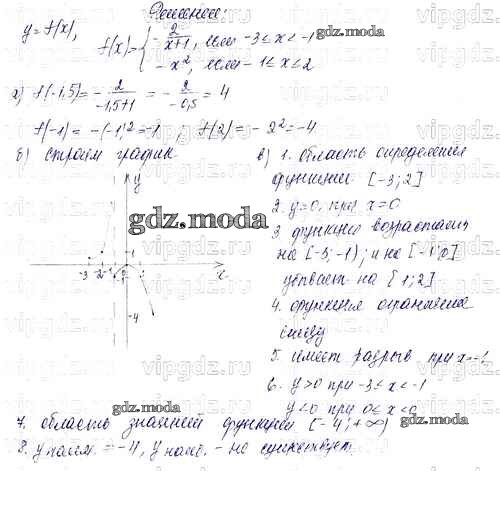 Решение:
y = f(x),
f(x) = { -2/(x+1), если -3 ≤ x < -1
-x², если -1 ≤ x ≤ 2
а) f(-1,5) = -2/(-1,5+1) = -2/(-0,5) = 4
f(-1) = -(-1)² = -1 ; f(2) = -2² = -4
б) строим график
y
x
-3 -2 -1
-4
в) 1. область определения
функции [-3; 2]
2. y=0, при x=0
3. функция возрастает
на [-3; -1); и на [-1; 0]
убывает на [1; 2]
4. функция ограничена
снизу
5. имеет разрыв при x=-1
6. y>0 при -3 ≤ x < -1
y<0 при 0 ≤ x <
7. область значений функции [-4; +∞)
8. y наим. = -4, y наиб. - не существует.
gdz.moda
gdz.moda
gdz.moda
gdz.moda
vipgdz.ru